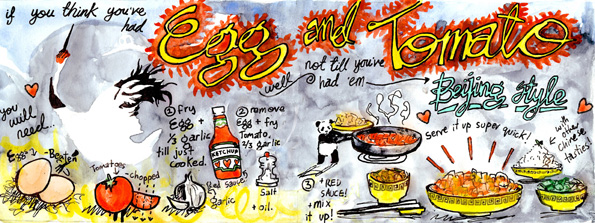 if you think you've
had
Egg and Tomato
well
not till you've
had 'em
Beijing style
you
will
need...
Eggs-2
-Beaten
Tomatoes
-chopped
① fry
Egg +
⅓ garlic
till just
cooked.
KETCHUP
Red sauce
Garlic
② remove
Egg + fry
Tomato,
⅔ garlic
Salt
+ oil.
③ + RED
SAUCE!
+ mix
it up!
serve it up super quick!
with
other
Chinese
tasties!